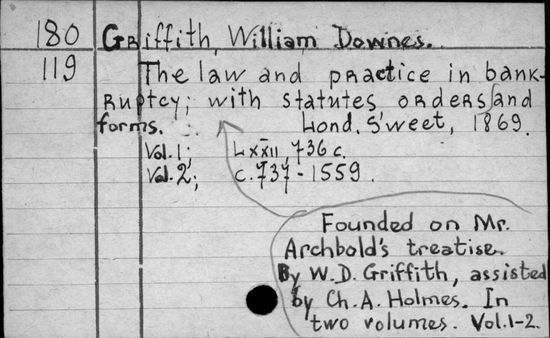 180 Griffith, William Downes.
119 The law and practice in bank-
ruptcy; with statutes orders and
forms. Lond. Sweet, 1869.
Vol. 1; LXXII, 736 c.
Vol. 2; c. 737-1559.
Founded on Mr.
Archbold's treatise.
By W.D. Griffith, assisted
by Ch. A. Holmes. In
two volumes. Vol. 1-2.